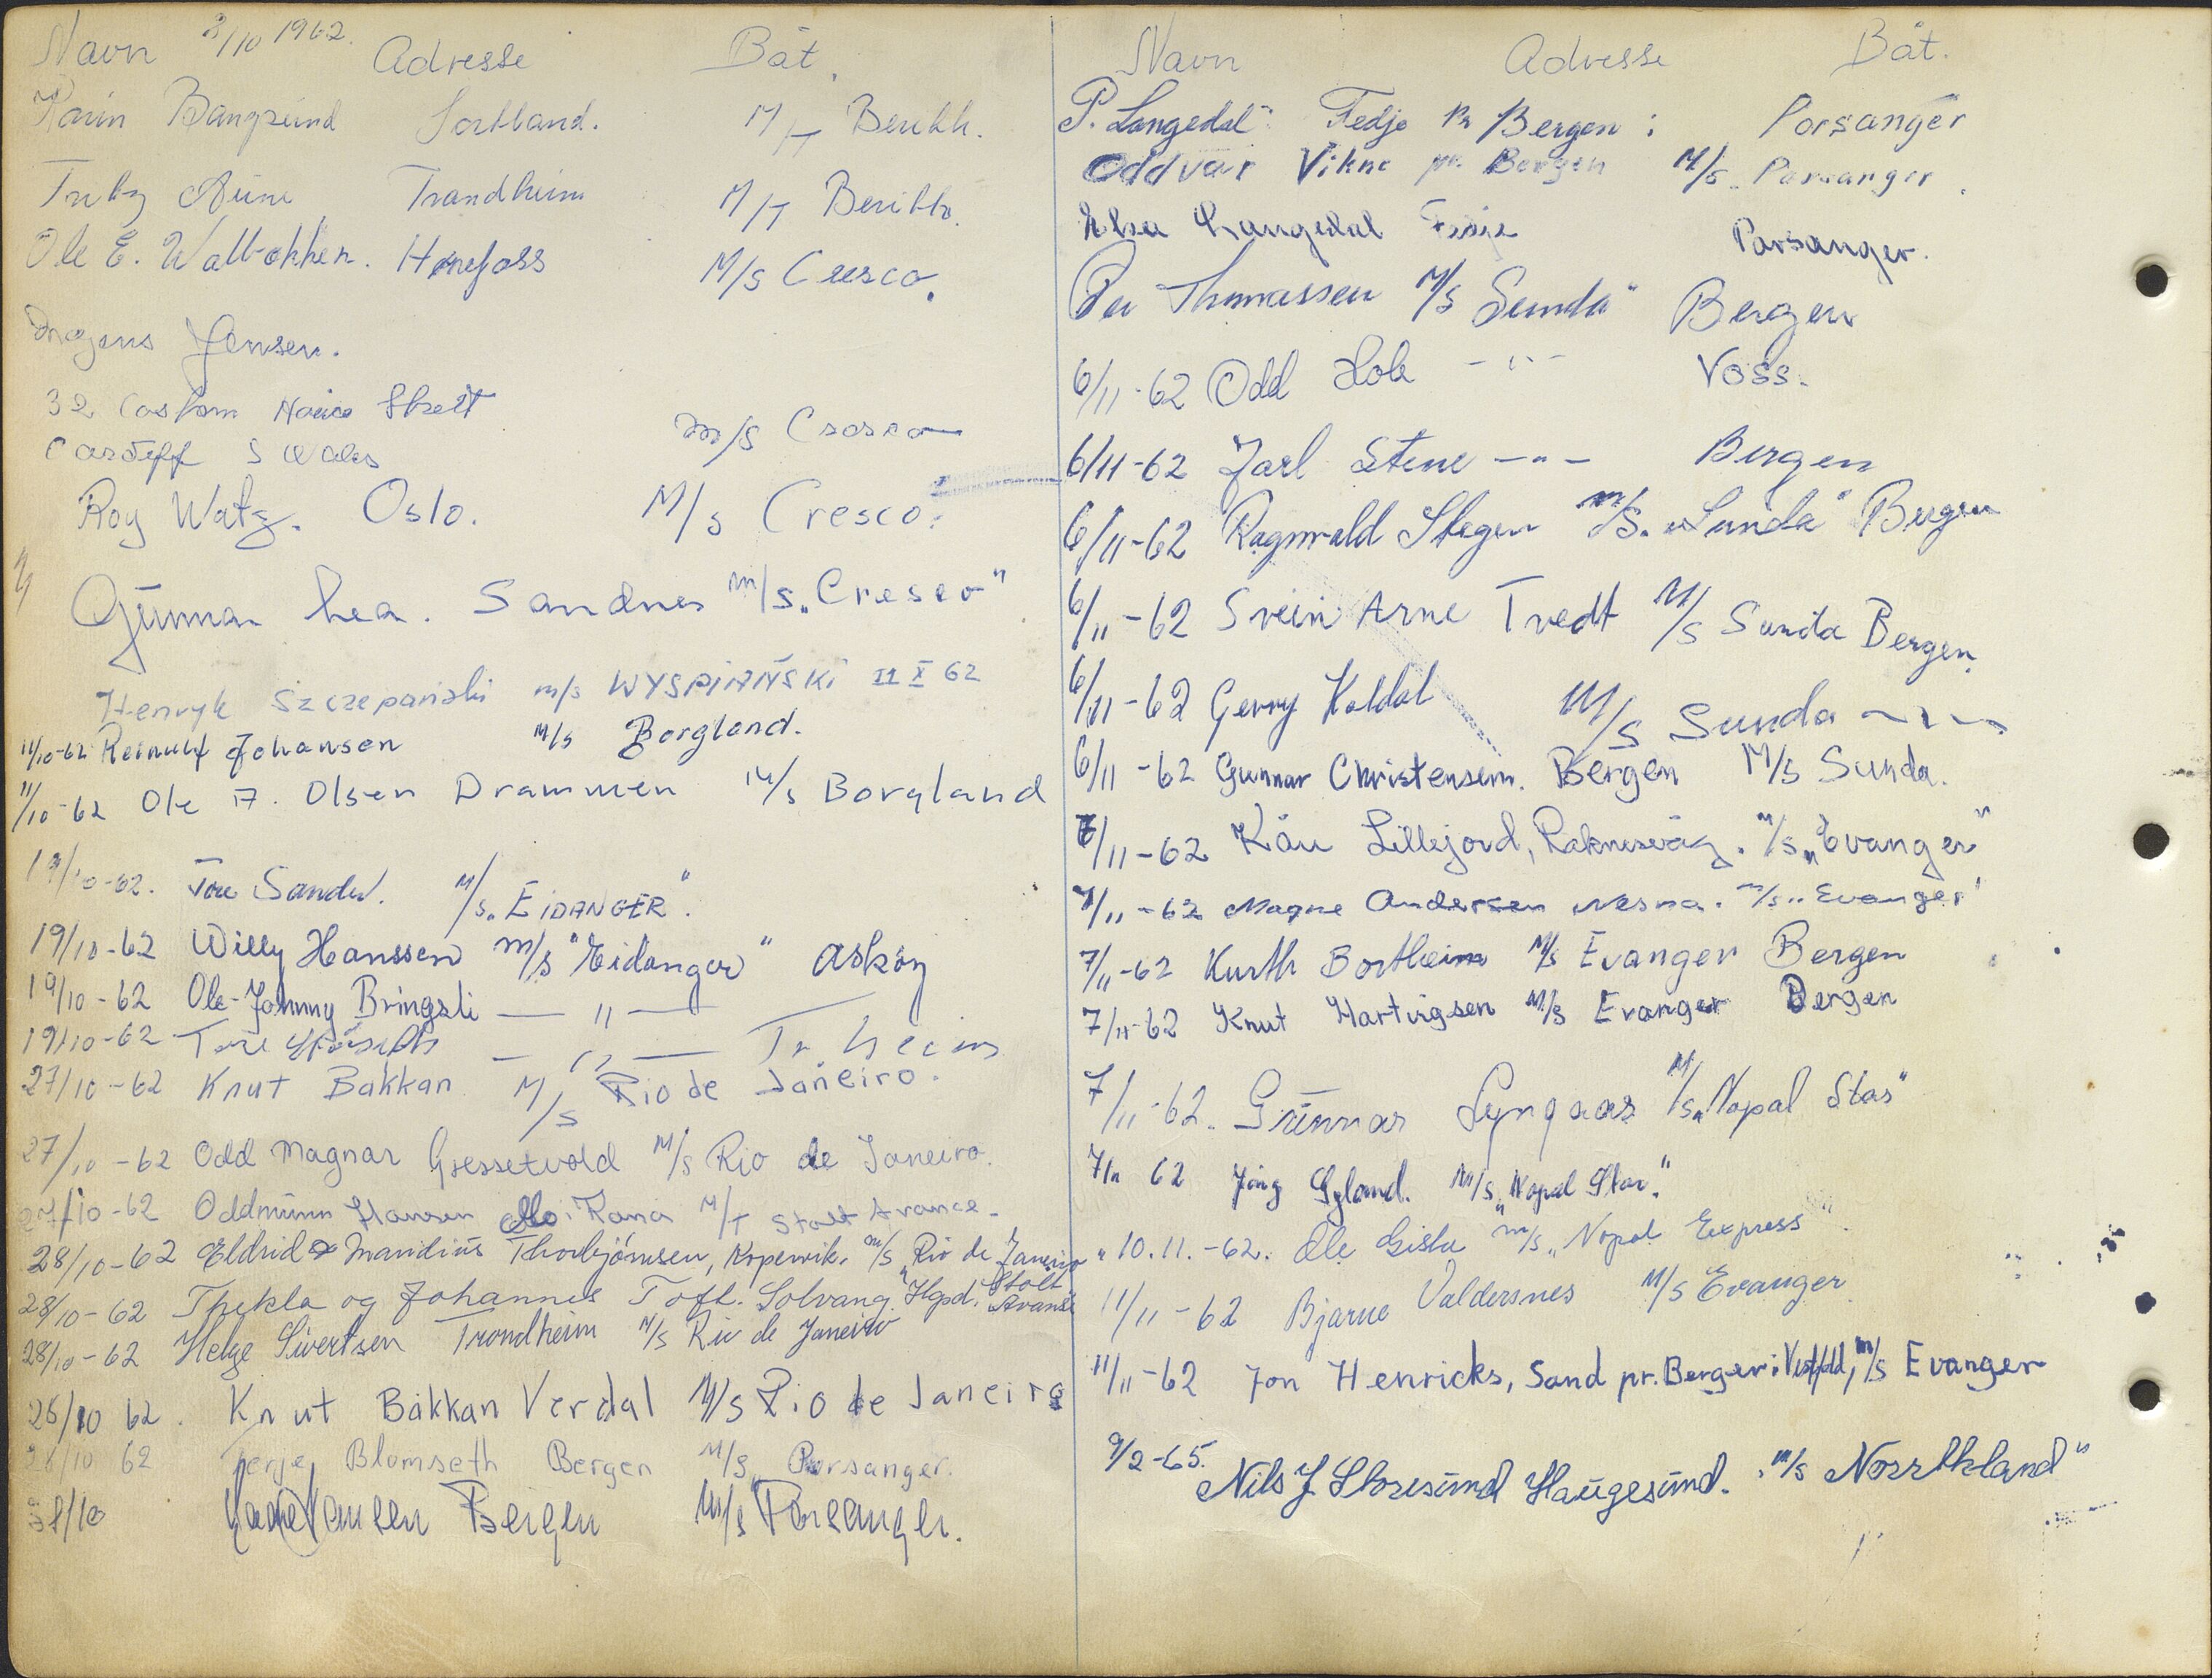 Navn 8/10 1962. Adresse Båt.
Karin Bangsund Sortland. M/T Beribh.
Aune Trondheim M/T Beribh.
Ole E. Walbækken. Hønefoss M/S Cresco.
Mogens Jensen.
32 Costom House Street
Cardiff S Wales m/s Cresco
Roy Watz. Oslo. M/s Cresco.
Gunnar Lea. Sandnes m/s „Cresco"
Henryk Szczepański m/s WYSPIAŃSKI 11 X 62
11/10-62 Reinulf Johansen m/s Borgland.
11/10-62 Ole A. Olsen Drammen M/s Borgland
19/10-62. Tore Sande. M/s „EIDANGER".
19/10-62 Willy Hanssen m/s "Eidanger" Askøy
19/10-62 Ole-Johnny Bringsli — " —
19/10-62 Tore — " — Tr. heim
27/10-62 Knut Bakkan M/S Rio de Janeiro.
27/10-62 Odd Magnar Gressetvold M/S Rio de Janeiro.
27/10-62 Oddmunn Hansen Mo i Rana M/T Stolt Avance-
28/10-62 Eldrid & Mandius Thorbjørnsen, Kopervik. m/s „Rio de Janeiro"
28/10-62 Thekla og Johannes Toft. Solvang. Hgsd. Stolt Avanse
28/10-62 Helge Sivertsen Trondheim M/S Rio de Janeiro
28/10 62. Knut Bakkan Verdal M/S Rio de Janeiro
28/10 62 Terje Blomseth Bergen M/S Porsanger.
Bergen M/s Porsanger.
Navn Adresse Båt.
P. Langedal Fedje pr Bergen : Porsanger
Oddvar Vikne pr. Bergen M/S. Porsanger.
Elsa Langedal Fedje Porsanger.
Per Thomassen M/S Sunda" Bergen
6/11-62 Odd Hole - " - Voss.
6/11-62 Jarl Stene - " - Bergen
6/11-62 Ragnvald Stegen m/S. „Sunda" Bergen
6/11-62 Svein Arne Tvedt M/S Sunda Bergen
6/11-62 Gerry Koldal M/S Sunda - " -
6/11-62 Gunnar Christensen. Bergen M/S Sunda.
7/11-62 Kåre Lillejord, Raknesvåg. M/S „Evanger"
7/11-62 Magne Andersen Nesna. m/s „Evanger"
7/11-62 Kurth Bortheim M/S Evanger Bergen
7/11-62 Knut Hartvigsen M/S Evanger Bergen
7/11-62. Gunnar Lyngaas M/S „Nopal Star"
7/11 62 Gyland. M/S „Nopal Star."
10.11.-62. Ole Gisle m/s „Nopal Express"
11/11-62 Bjarne Valdersnes M/S Evanger
11/11-62 Jon Henricks, Sand pr. Berger i Vestfold, m/s Evanger
9/2-65. Nils J. Storesund Haugesund. „m/s Norrthland"